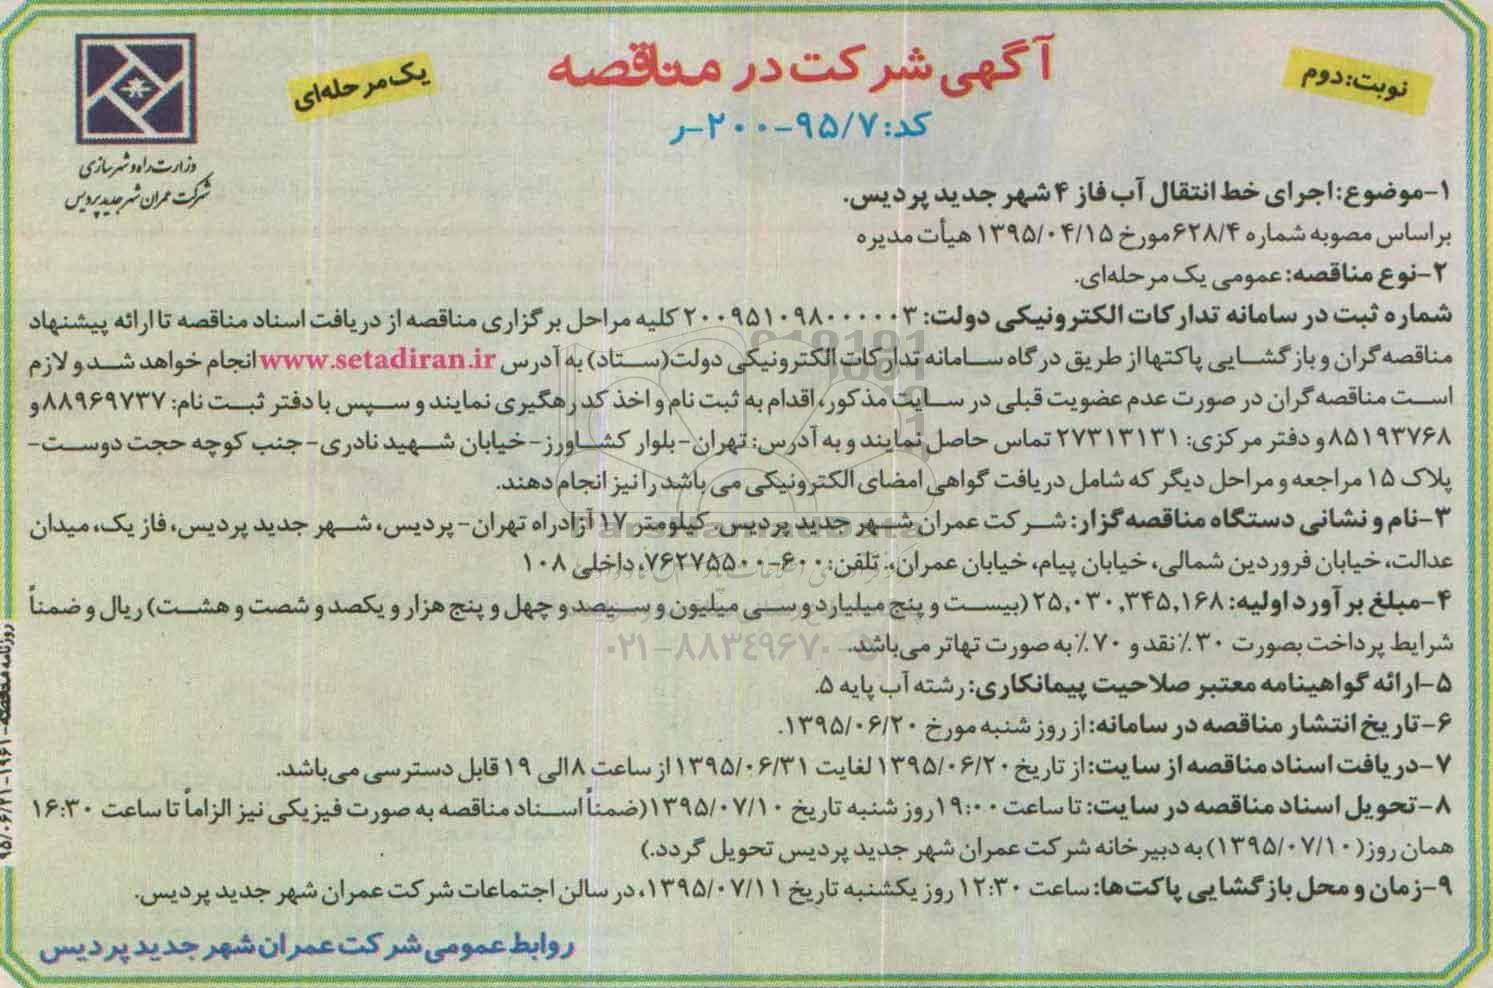 نوبت: دوم
آگهی شرکت در مناقصه
یک مرحله‌ای
کد: ۹۵/۷-۲۰۰-ر
وزارت راه و شهرسازی
شرکت عمران شهر جدید پردیس
۱-موضوع: اجرای خط انتقال آب فاز ۴ شهر جدید پردیس.
براساس مصوبه شماره ۶۲۸/۴ مورخ ۱۳۹۵/۰۴/۱۵ هیأت مدیره
۲-نوع مناقصه: عمومی یک مرحله‌ای.
شماره ثبت در سامانه تدارکات الکترونیکی دولت: ۲۰۰۹۵۱۰۹۸۰۰۰۰۰۳ کلیه مراحل برگزاری مناقصه از دریافت اسناد مناقصه تا ارائه پیشنهاد
مناقصه‌گران و بازگشایی پاکتها از طریق درگاه سامانه تدارکات الکترونیکی دولت(ستاد) به آدرس www.setadiran.ir انجام خواهد شد و لازم
است مناقصه‌گران در صورت عدم عضویت قبلی در سایت مذکور، اقدام به ثبت نام و اخذ کد رهگیری نمایند و سپس با دفتر ثبت نام: ۸۸۹۶۹۷۳۷ و
۸۵۱۹۳۷۶۸ و دفتر مرکزی: ۲۷۳۱۳۱۳۱ تماس حاصل نمایند و به آدرس: تهران-بلوار کشاورز-خیابان شهید نادری-جنب کوچه حجت دوست-
پلاک ۱۵ مراجعه و مراحل دیگر که شامل دریافت گواهی امضای الکترونیکی می باشد را نیز انجام دهند.
۳-نام و نشانی دستگاه مناقصه‌گزار: شرکت عمران شهر جدید پردیس. کیلومتر ۱۷ آزادراه تهران-پردیس، شهر جدید پردیس، فاز یک، میدان
عدالت، خیابان فروردین شمالی، خیابان پیام، خیابان عمران،. تلفن: ۶۰۰-۷۶۲۷۵۵۰۰، داخلی ۱۰۸
۴-مبلغ برآورد اولیه: ۲۵,۰۳۰,۳۴۵,۱۶۸ (بیست و پنج میلیارد و سی میلیون و سیصد و چهل و پنج هزار و یکصد و شصت و هشت) ریال و ضمناً
شرایط پرداخت بصورت ۳۰٪ نقد و ۷۰٪ به صورت تهاتر می‌باشد.
۵-ارائه گواهینامه معتبر صلاحیت پیمانکاری: رشته آب پایه ۵.
۶-تاریخ انتشار مناقصه در سامانه: از روز شنبه مورخ ۱۳۹۵/۰۶/۲۰.
۷-دریافت اسناد مناقصه از سایت: از تاریخ ۱۳۹۵/۰۶/۲۰ لغایت ۱۳۹۵/۰۶/۳۱ از ساعت ۸ الی ۱۹ قابل دسترسی می‌باشد.
۸-تحویل اسناد مناقصه در سایت: تا ساعت ۱۹:۰۰ روز شنبه تاریخ ۱۳۹۵/۰۷/۱۰ (ضمناً اسناد مناقصه به صورت فیزیکی نیز الزاماً تا ساعت ۱۶:۳۰
همان روز(۱۳۹۵/۰۷/۱۰) به دبیرخانه شرکت عمران شهر جدید پردیس تحویل گردد.)
۹-زمان و محل بازگشایی پاکت‌ها: ساعت ۱۲:۳۰ روز یکشنبه تاریخ ۱۳۹۵/۰۷/۱۱، در سالن اجتماعات شرکت عمران شهر جدید پردیس.
روابط عمومی شرکت عمران شهر جدید پردیس
روزنامه مناقصه-۱۹۶۱-۹۵/۰۶/۲۱
۰۲۱-۸۸۳۴۹۶۷۰-۵